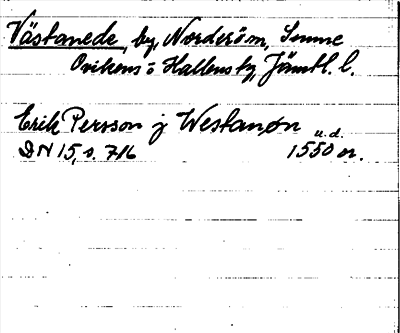 Västanede, by, Norderöm, Sunne
Ovikens o Hallens tg, Jämtl. l.
Erik Persson j Westanøn u.d.
DN 15, s. 716 1550 or.